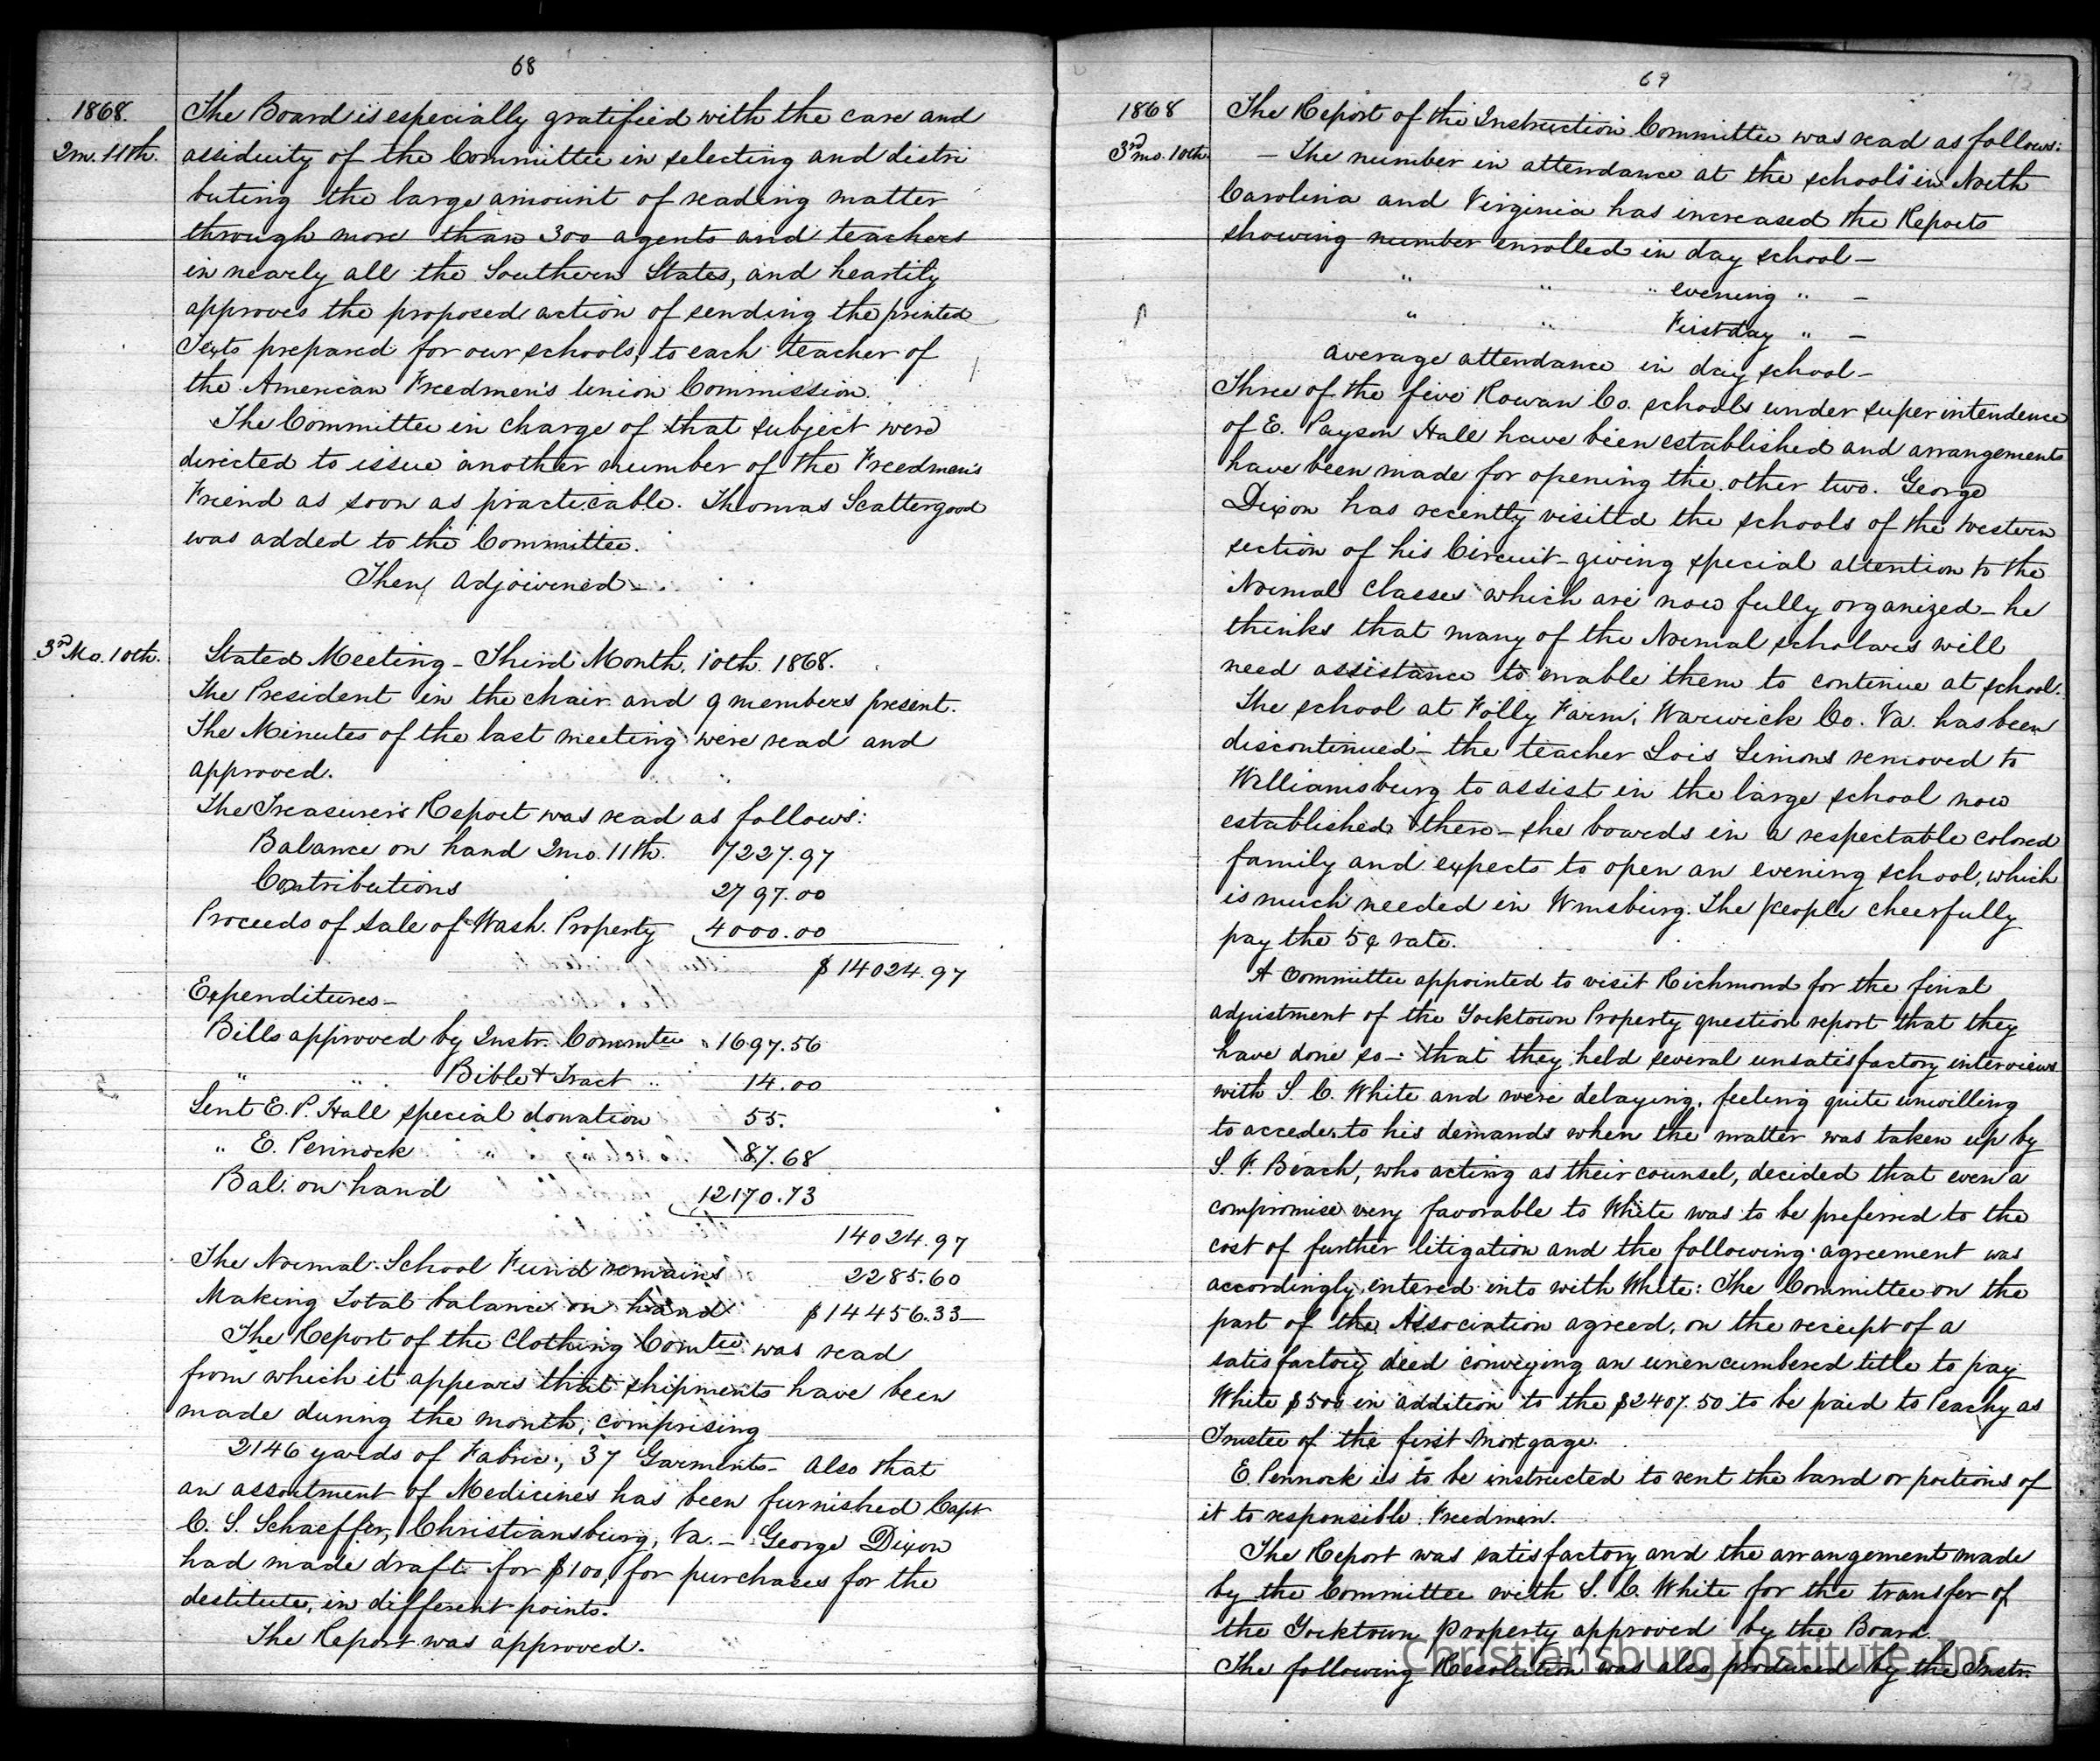 68
1868.
2m. 11th.
The Board is especially gratified with the care and
assiduity of the Committee in selecting and distri
buting the large amount of reading matter
through more than 300 agents and teachers
in nearly all the Southern States, and heartily
approves the proposed action of sending the printed
Texts prepared for our schools, to each teacher of
the American Freedmen's Union Commission.
The Committee in charge of that subject were
directed to issue another number of the Freedmen's
Friend as soon as practicable. Thomas Scattergood
was added to the Committee.
Then, adjourned -
3rd Mo. 10th.
Stated Meeting - Third Month. 10th. 1868.
The President in the chair and 9 members present.
The Minutes of the last meeting were read and
approved.
The Treasurer's Report was read as follows:
Balance on hand 2mo. 11th. 7227.97
Contributions 2797.00
Proceeds of sale of Wash. Property 4000.00
$14024.97
Expenditures -
Bills approved by Instr. Commtee " 1697.56
" " Bible & Tract " 14.00
Sent E. P. Hall special donation 55.
" E. Pennock 87.68
Bal. on hand 12170.73
14024.97
The Normal School Fund remains 2285.60
Making total balance on hand $14456.33
The Report of the Clothing Comtee was read
from which it appears that shipments have been
made during the month, comprising
2146 yards of Fabric; 37 Garments - also that
an assortment of Medicines has been furnished Capt
C. S. Schaeffer, Christiansburg, Va. - George Dixon
had made draft for $100, for purchases for the
destitute, in different points.
The Report was approved.
69
1868
3rd mo. 10th
The Report of the Instruction Committee was read as follows:
- The number in attendance at the schools in North
Carolina and Virginia has increased the Reports
showing number enrolled in day school -
" " " evening " -
" " Firstday " -
average attendance in day school -
Three of the five Rowan Co. schools under superintendence
of E. Payson Hall have been established and arrangements
have been made for opening the other two. George
Dixon has recently visited the schools of the Western
section of his Circuit - giving special attention to the
Normal Classes which are now fully organized - he
thinks that many of the Normal scholars will
need assistance to enable them to continue at school.
The school at Folly Farm, Warwick Co. Va. has been
discontinued - the teacher Lois Simons removed to
Williamsburg to assist in the large school now
established there - she boards in a respectable colored
family and expects to open an evening school, which
is much needed in Wmsburg. The people cheerfully
pay the 5¢ rate.
A Committee appointed to visit Richmond for the final
adjustment of the Yorktown Property question report that they
have done so - that they held several unsatisfactory interviews
with S. C. White and were delaying, feeling quite unwilling
to accede to his demands when the matter was taken up by
S. F. Beach, who acting as their counsel, decided that even a
compromise very favorable to White was to be preferred to the
cost of further litigation and the following agreement was
accordingly entered into with White: The Committee on the
part of the Association agreed, on the receipt of a
satisfactory deed conveying an unencumbered title to pay
White $500 in addition to the $2407.50 to be paid to Peachy as
Trustee of the first mortgage.
E. Pennock is to be instructed to rent the land or portions of
it to responsible Freedmen.
The Report was satisfactory and the arrangement made
by the Committee with S. C. White for the transfer of
the Yorktown Property approved by the Board.
The following Resolution was also produced by the Instr.
Christiansburg Institute, Inc.